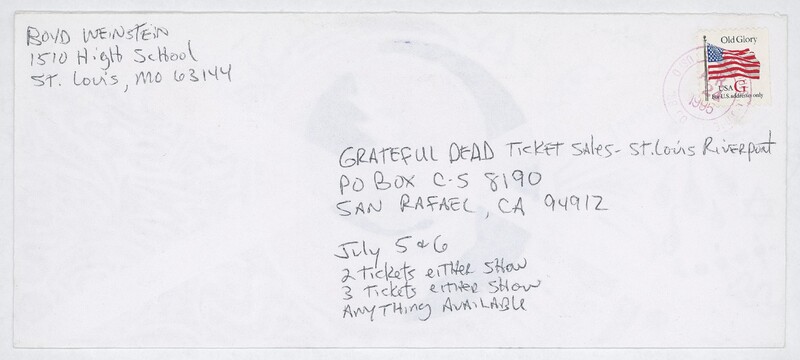 BOYD WEINSTEIN
1510 High School
ST. Louis, MO 63144
Old Glory
USA G
For U.S. addresses only
1995
GRATEFUL DEAD TICKET SALES - ST. Louis RIVERPORT
PO BOX C-S 8190
SAN RAFAEL, CA 94912
July 5 & 6
2 Tickets EITHER SHOW
3 Tickets EITHER SHOW
ANYTHING AVAILABLE